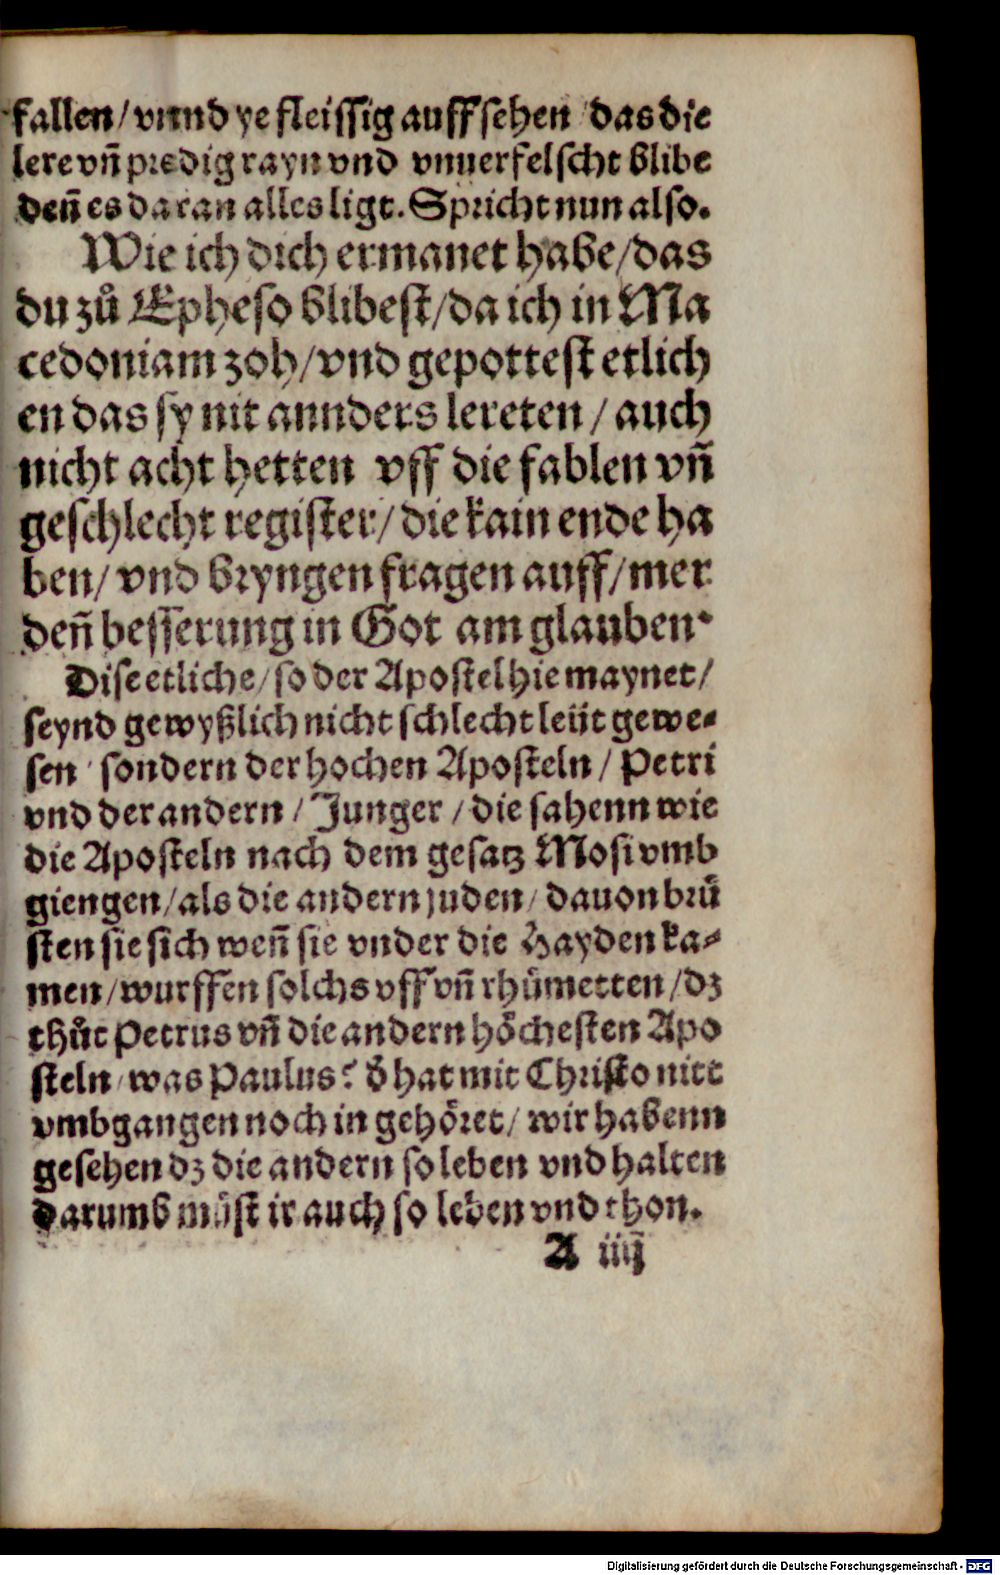 fallen / vnnd ye fleissig auffsehen / das die
lere vñ predig rayn vnd vnuerfelscht blibe
deñ es daran alles ligt. Spricht nun also.
Wie ich dich ermanet habe / das
du zů Epheso blibest / da ich in Ma
cedoniam zoh / vnd gepottest etlich
en das sy nit annders lereten / auch
nicht acht hetten vff die fablen vñ
geschlecht register / die kain ende ha
ben / vnd bryngen fragen auff / mer
deñ besserung in Got am glauben.
Dise etliche / so der Apostel hie maynet /
seynd gewyßlich nicht schlecht leüt gewe⸗
sen / sondern der hochen Aposteln / Petri
vnd der andern / Junger / die sahenn wie
die Aposteln nach dem gesatz Mosi vmb
giengen / als die andern juden / dauon brü
sten sie sich weñ sie vnder die Hayden ka⸗
men / wurffen solchs vff vñ rhůmetten / dz
thůt Petrus vñ die andern höchesten Apo
steln / was Paulus? d̕ hat mit Christo nitt
vmbgangen noch in gehöret / wir habenn
gesehen dz die andern so leben vnd halten
darumb müst ir auch so leben vnd thon.
A iiij
Digitalisierung gefördert durch die Deutsche Forschungsgemeinschaft - DFG